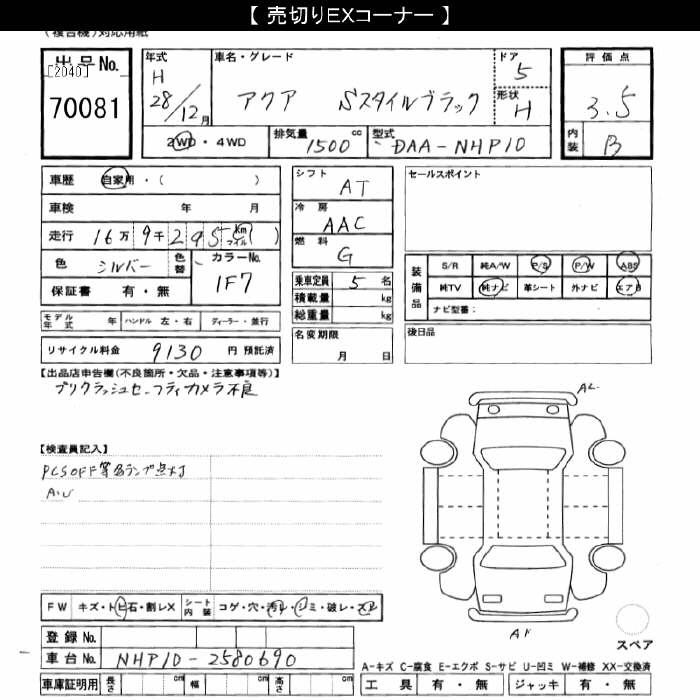 【 売切りEXコーナー 】
(複合機)対応用紙
出品No.
[2040]
70081
年式 H 28/12月
車名・グレード
アクア Sスタイルブラック
ドア 5
形状 H
2WD・4WD
排気量 1500 cc
型式 DAA-NHP10
評価点
3.5
内装 B
車歴 自家用・( )
車検 年 月
走行 16万9千295 Km マイル ( )
色 シルバー
色替
カラーNo. 1F7
保証書 有・無
モデル年式 年 ハンドル 左・右 ディーラー・並行
リサイクル料金 9130 円 預託済
シフト AT
冷房 AAC
燃料 G
乗車定員 5 名
積載量 kg
総重量 kg
名変期限
月 日
セールスポイント
装備品
S/R 純A/W P/S P/W ABS
純TV 純ナビ 革シート 外ナビ エアB
ナビ型番：
後日品
【出品店申告欄(不良箇所・欠品・注意事項等)】
プリクラッシュセーフティカメラ不良
【検査員記入】
PCSOFF等各ランプ点灯
A・U
FW キズ・トビ石・割レX
シート内装 コゲ・穴・汚レ・シミ・破レ・スレ
登録No.
車台No. NHP10-2580690
車庫証明用 長さ cm 幅 cm 高さ cm
スペア
A-キズ C-腐食 E-エクボ S-サビ U-凹ミ W-補修 XX-交換済
工具 有・無 ジャッキ 有・無